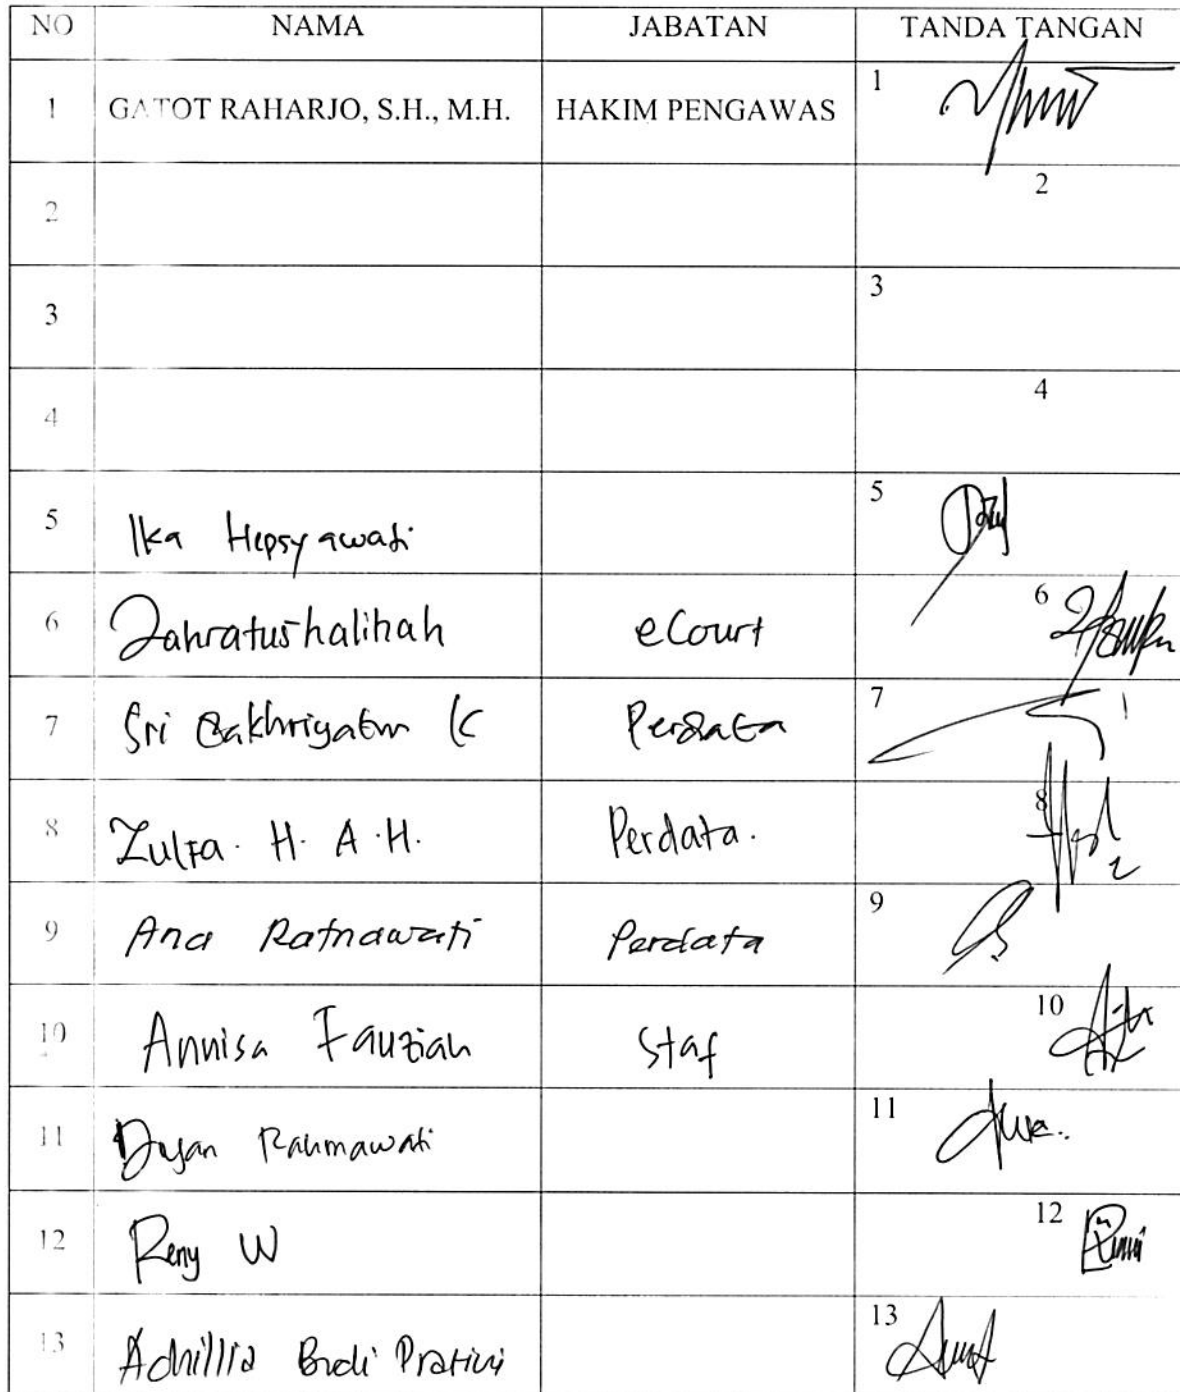 NO NAMA JABATAN TANDA TANGAN
1 GATOT RAHARJO, S.H., M.H. HAKIM PENGAWAS 1
2 2
3 3
4 4
5 Ika Hepsyawati 5
6 Zahratushalihah eCourt 6
7 Sri Bakhriyatun K Perdata 7
8 Zulfa. H. A. H. Perdata. 8
9 Ana Ratnawati Perdata 9
10 Annisa Fauziah Staf 10
11 Rahmawati 11
12 Reny W 12
13 Budi Pratiwi 13